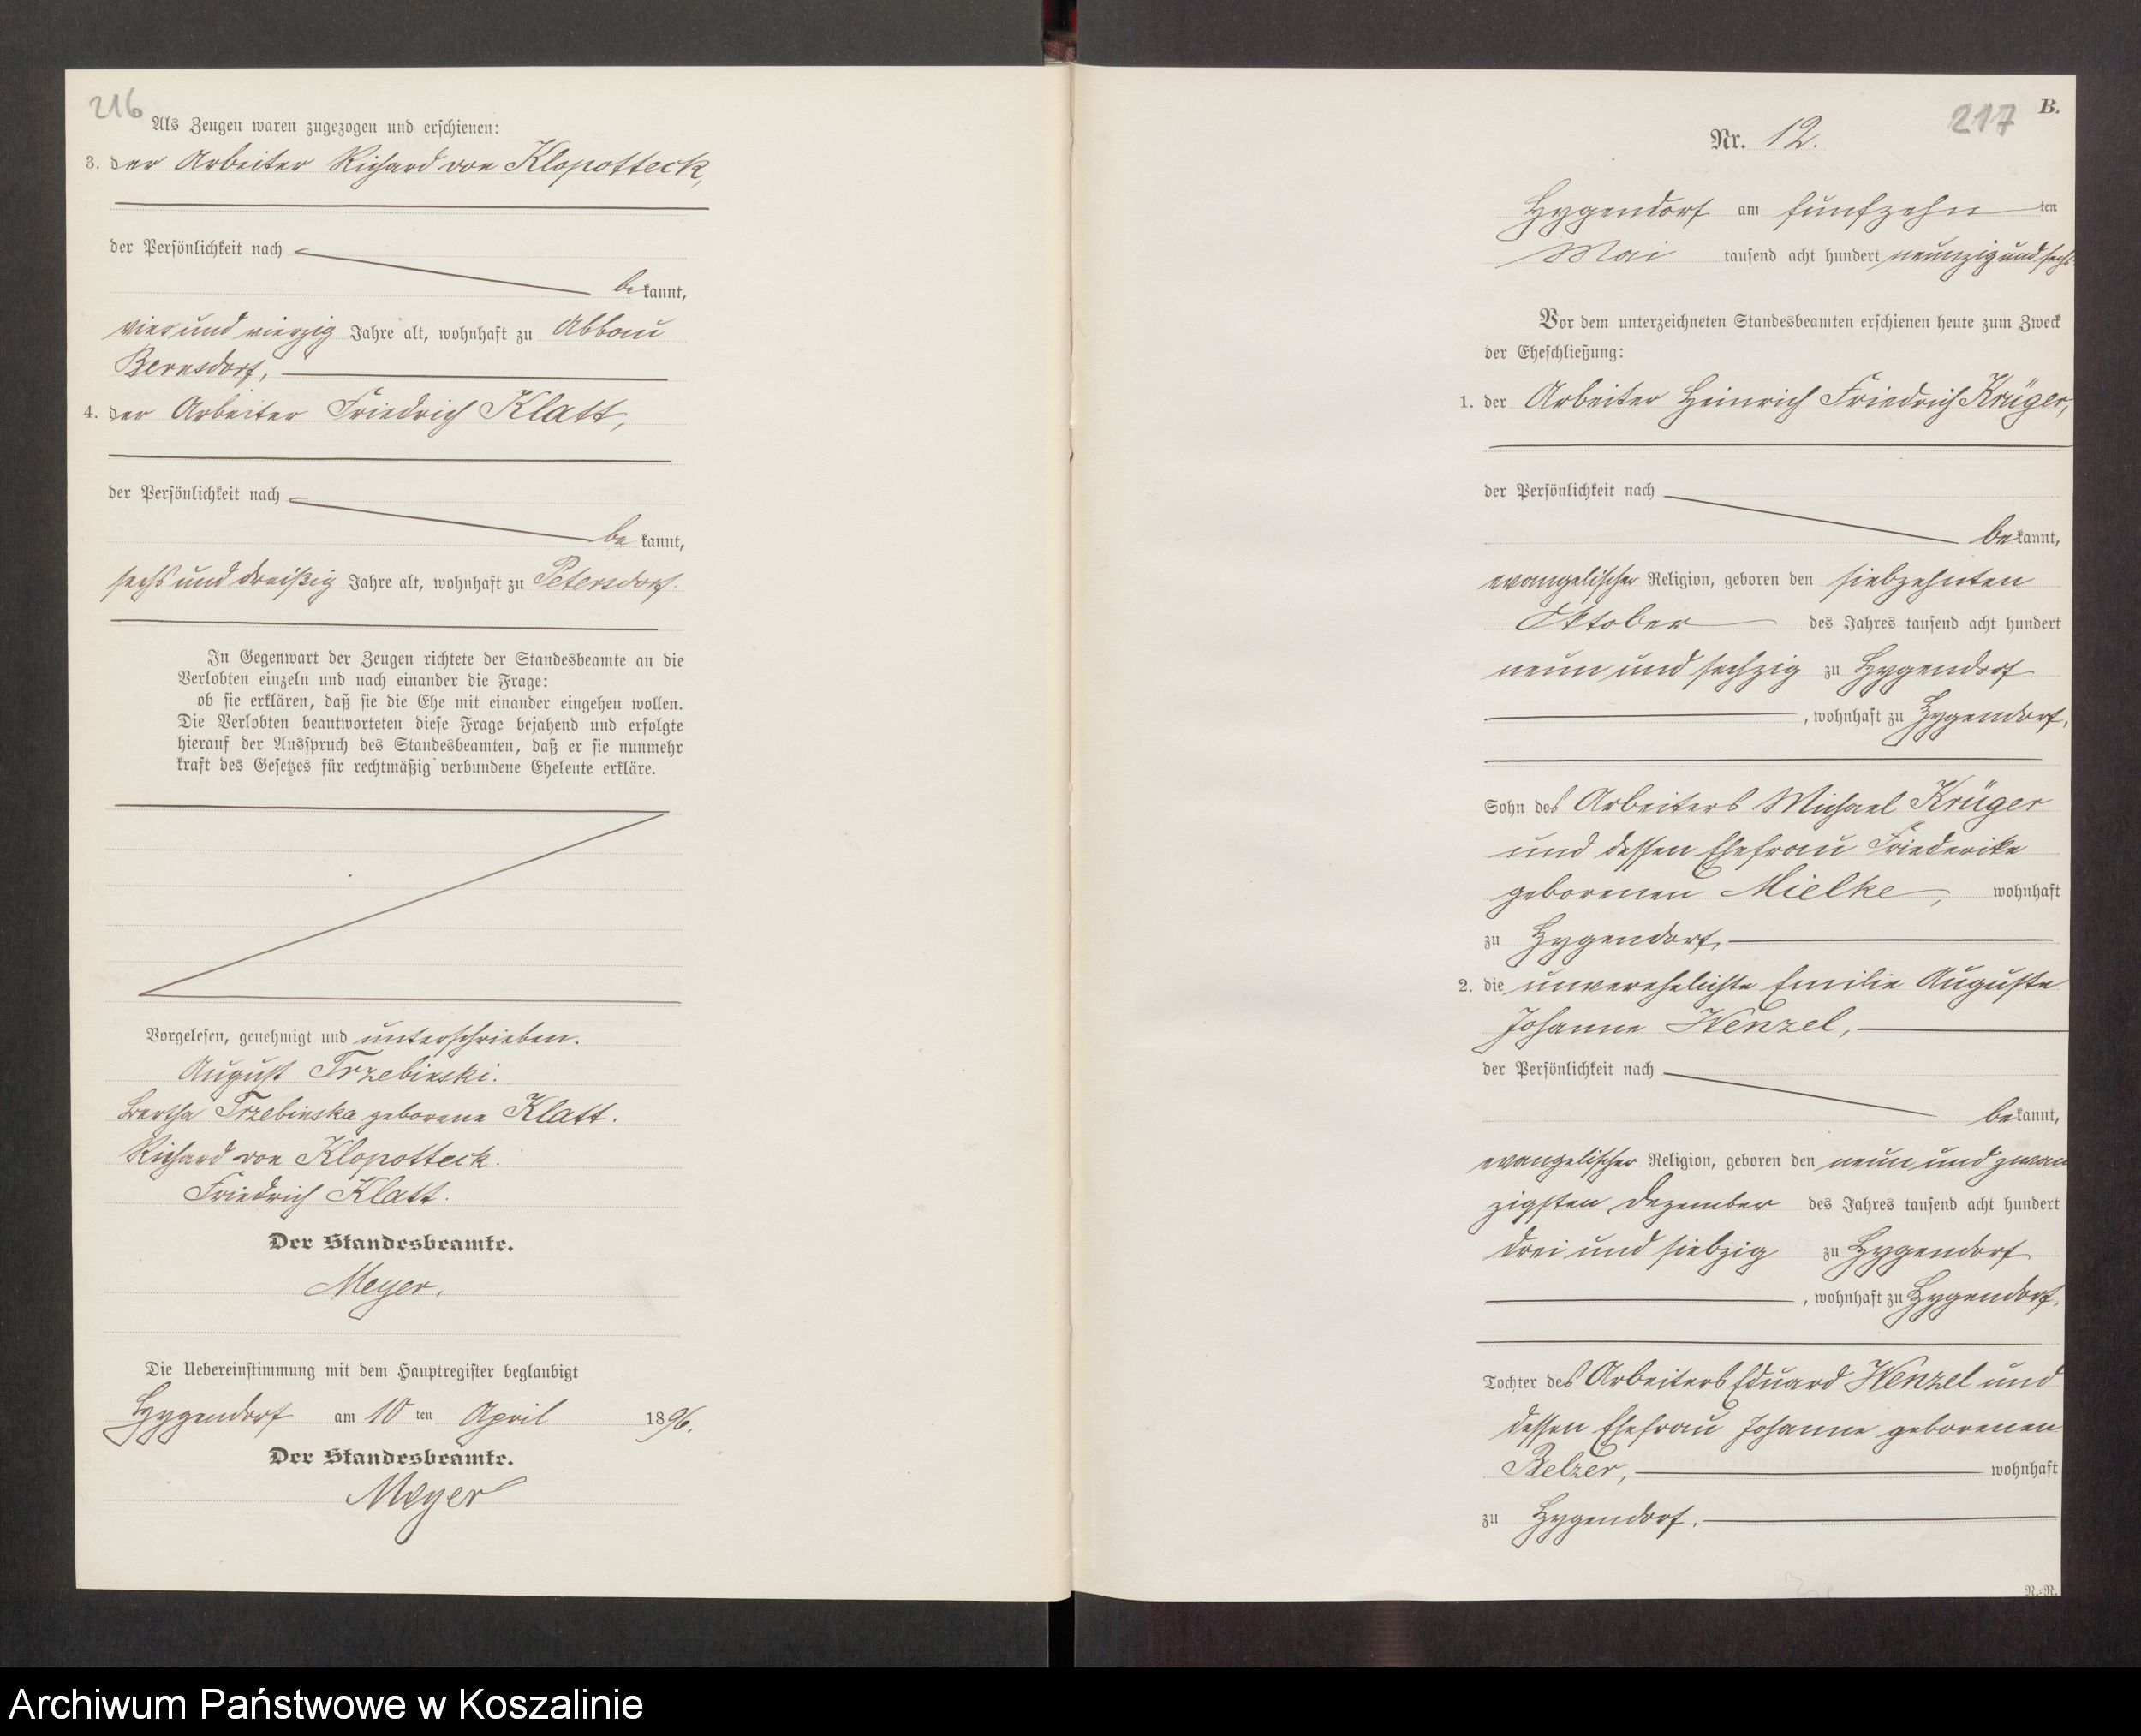 216
Als Zeugen waren zugezogen und erschienen:
3. der Arbeiter Richard von Klopotteck,
der Persönlichkeit nach
bekannt,
vier und vierzig Jahre alt, wohnhaft zu Abbau
Bernsdorf,
4. der Arbeiter Friedrich Klatt,
der Persönlichkeit nach
be kannt,
sechs und dreißig Jahre alt, wohnhaft zu Petersdorf.
In Gegenwart der Zeugen richtete der Standesbeamte an die
Verlobten einzeln und nach einander die Frage:
ob sie erklären, daß sie die Ehe mit einander eingehen wollen.
Die Verlobten beantworteten diese Frage bejahend und erfolgte
hierauf der Ausspruch des Standesbeamten, daß er sie nunmehr
kraft des Gesetzes für rechtmäßig verbundene Eheleute erkläre.
Vorgelesen, genehmigt und unterschrieben.
August Trzebinski.
Bertha Trzebinska geborene Klatt.
Richard von Klopotteck.
Friedrich Klatt.
Der Standesbeamte.
Meyer.
Die Uebereinstimmung mit dem Hauptregister beglaubigt
Hygendorf am 10 ten April 1896.
Der Standesbeamte.
Meyer
217
B.
Nr. 12.
Hygendorf am fünfzehn ten
Mai tausend acht hundert neunzig und sechs
Vor dem unterzeichneten Standesbeamten erschienen heute zum Zweck
der Eheschließung:
1. der Arbeiter Heinrich Friedrich Krüger,
der Persönlichkeit nach
bekannt,
evangelischer Religion, geboren den siebzehnten
Oktober des Jahres tausend acht hundert
neun und sechzig zu Hygendorf
, wohnhaft zu Hygendorf,
Sohn des Arbeiters Michael Krüger
und dessen Ehefrau Friederike
geborenen Mielke, wohnhaft
zu Hygendorf,
2. die unverehelichte Emilie Auguste
Johanne Wenzel,
der Persönlichkeit nach
bekannt,
evangelischer Religion, geboren den neun und zwan
zigsten Dezember des Jahres tausend acht hundert
drei und siebzig zu Hygendorf
, wohnhaft zu Hygendorf,
Tochter des Arbeiters Eduard Wenzel und
dessen Ehefrau Johanne geborenen
Belzer, wohnhaft
zu Hygendorf.
R.=R.
Archiwum Państwowe w Koszalinie